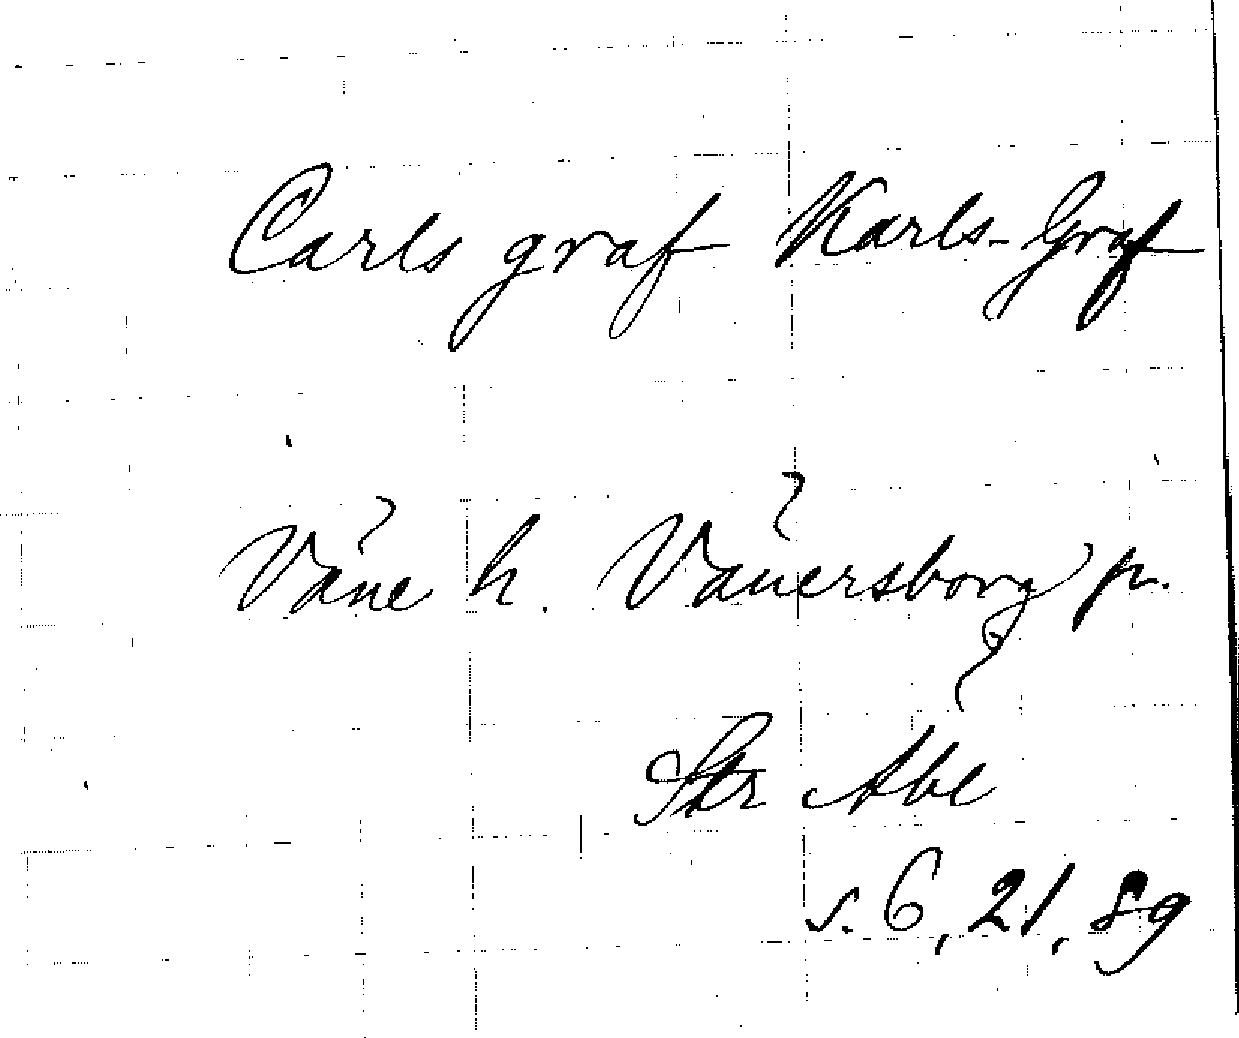 Carls graf Karls-Graf
Väne h. Vänersborg fr.
Abl
s. 6, 21, 89